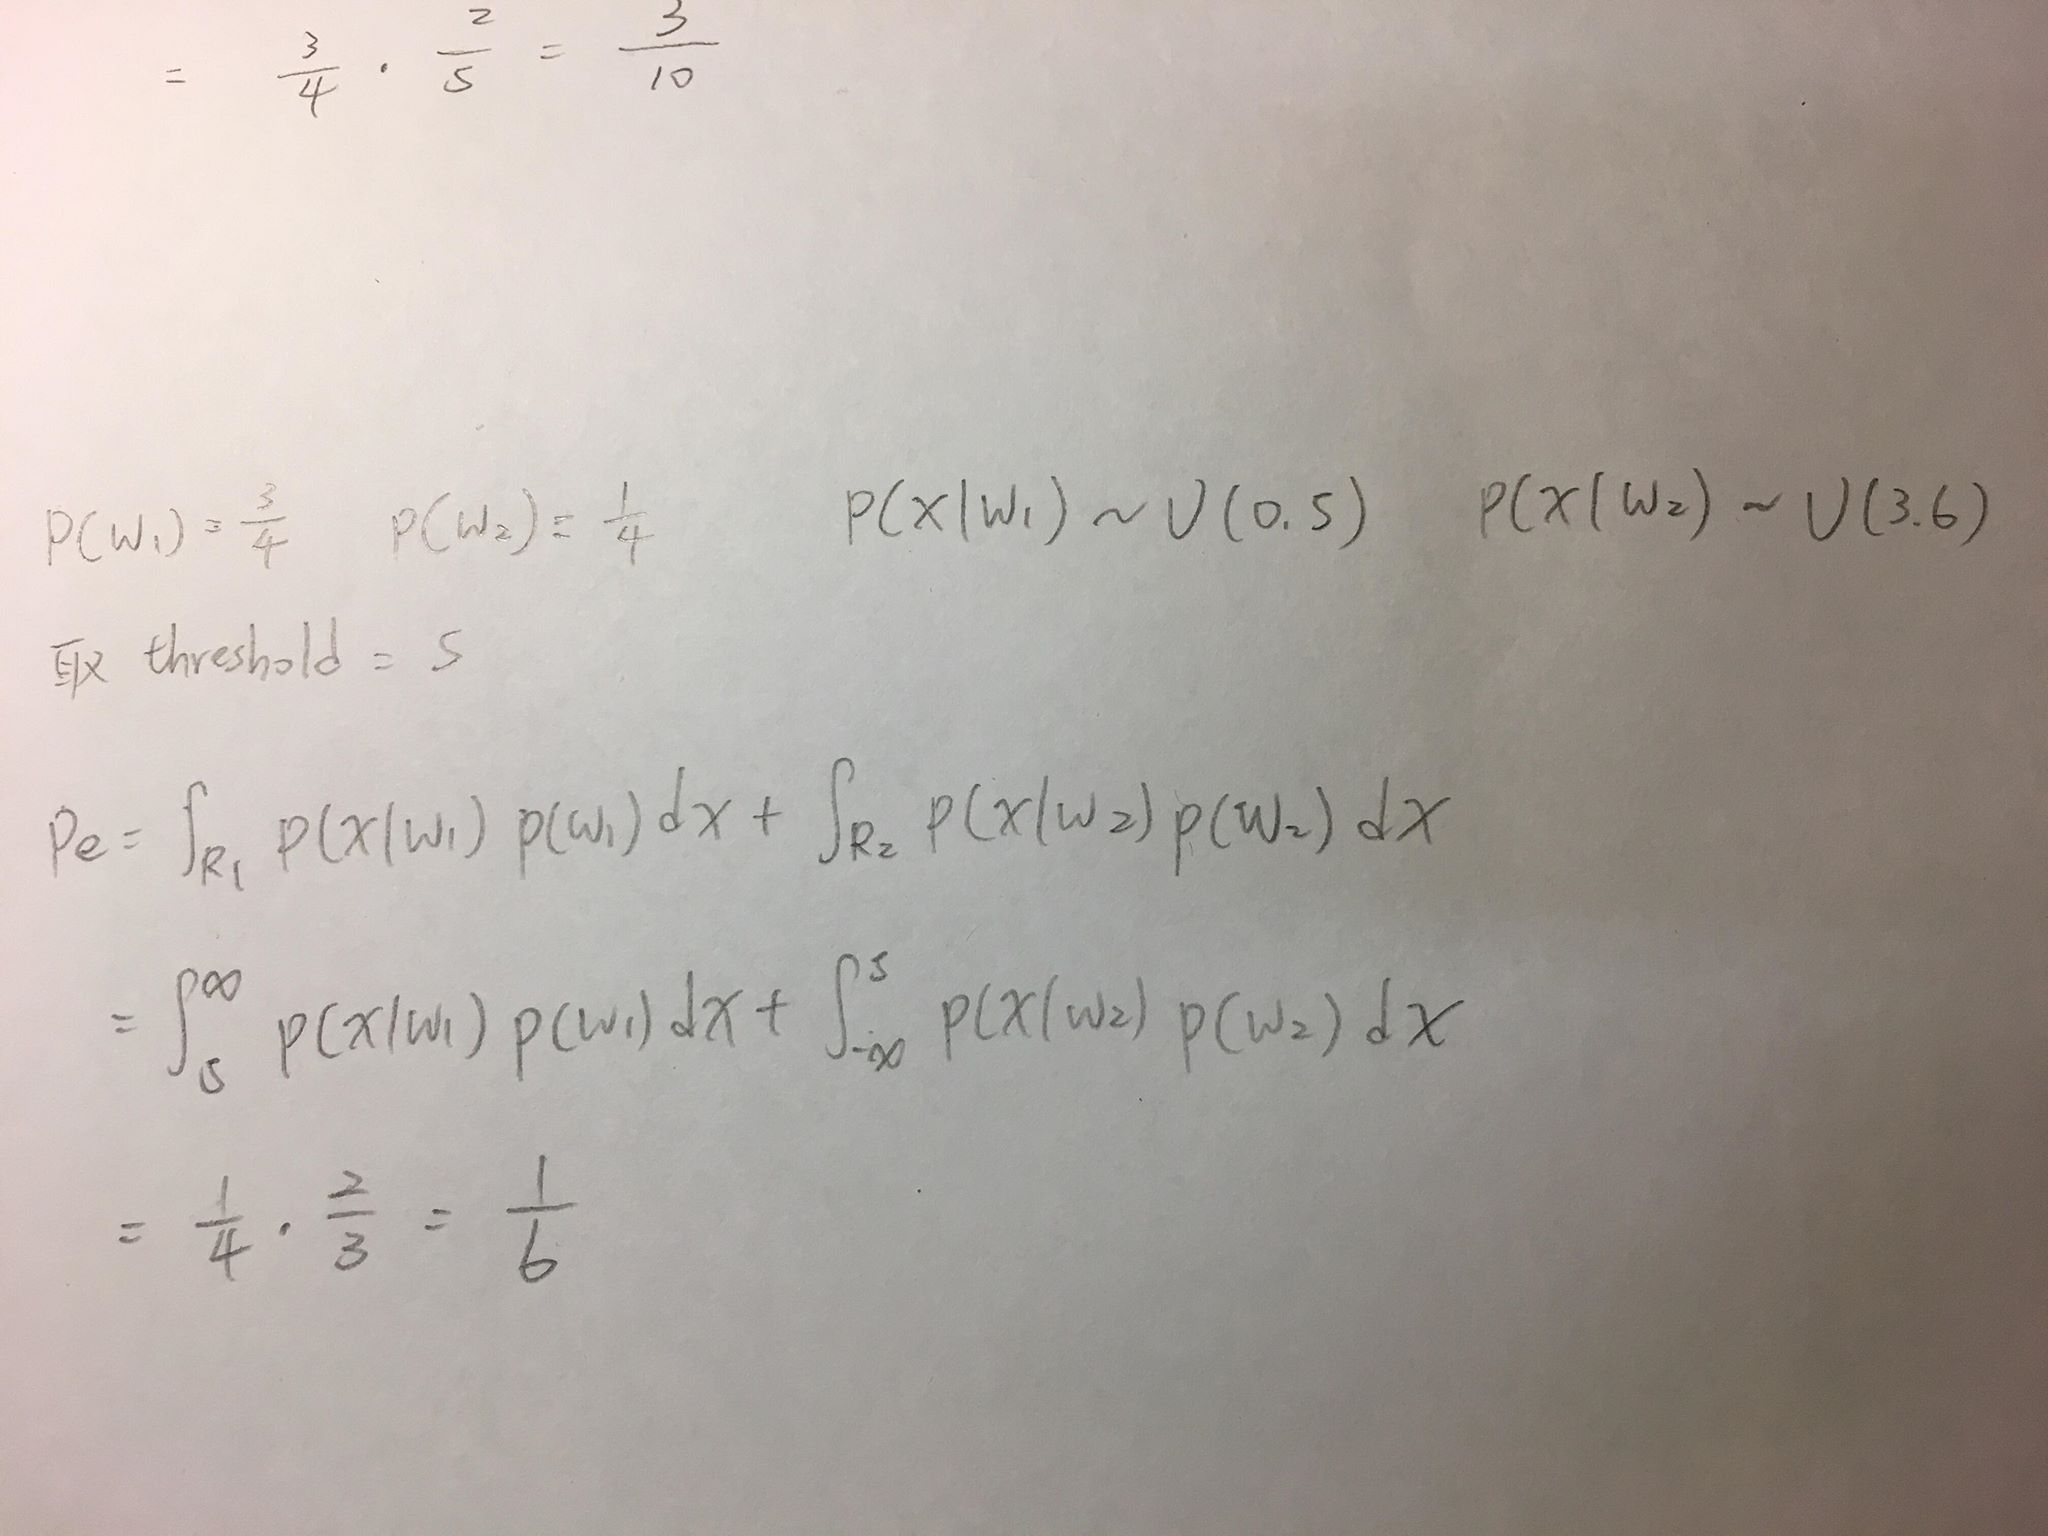 = 3/4 · 2/5 = 3/10
P(W₁) = 3/4 P(W₂) = 1/4 P(X|W₁) ~ U(0.5) P(X|W₂) ~ U(3.6)
取 threshold = 5
Pe = ∫R₁ P(X|W₁) P(W₁) dx + ∫R₂ P(X|W₂) P(W₂) dx
= ∫₅^∞ P(X|W₁) P(W₁) dx + ∫₋∞^5 P(X|W₂) P(W₂) dx
= 1/4 · 2/3 = 1/6